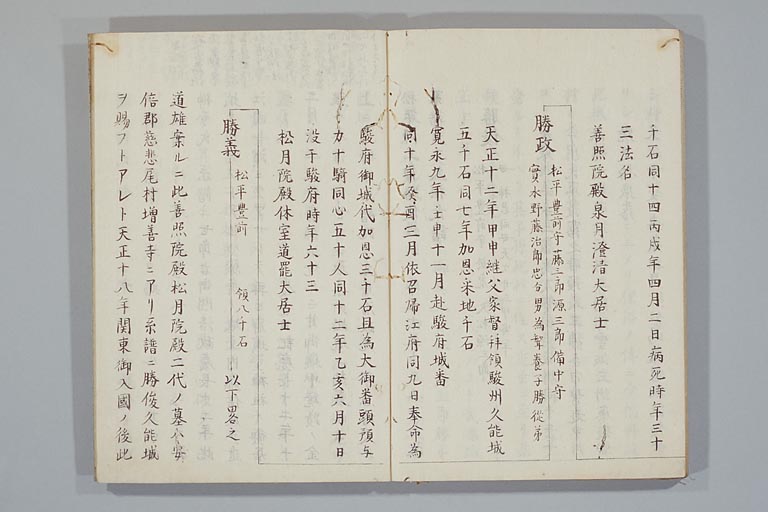 千石同十四丙戌年四月二日病死時年三十
三法名
善照院殿泉月澄清大居士
勝政 松平豊前守 藤三郎 源三郎 備中守
實水野藤治郎忠分男為聟養子勝従弟
天正十二年甲申継父家督拝領駿州久能城
五千石同七年加恩采地千石
寛永九年壬申十一月赴駿府城番
同十年癸酉三月依召帰江府同九日奉命為
駿府御城代加恩三千石且為大御番頭預与
力十騎同心五十人同十二年乙亥六月十日
没于駿府時年六十三
松月院殿休室道罷大居士
勝義 松平豊前 領八千石 以下畧之
道雄案ルニ此善照院殿松月院殿二代ノ墓公安
倍郡慈悲尾村増善寺ニアリ系譜ニ勝俊久能城
ヲ賜フトアレト天正十八年関東御入國ノ後此